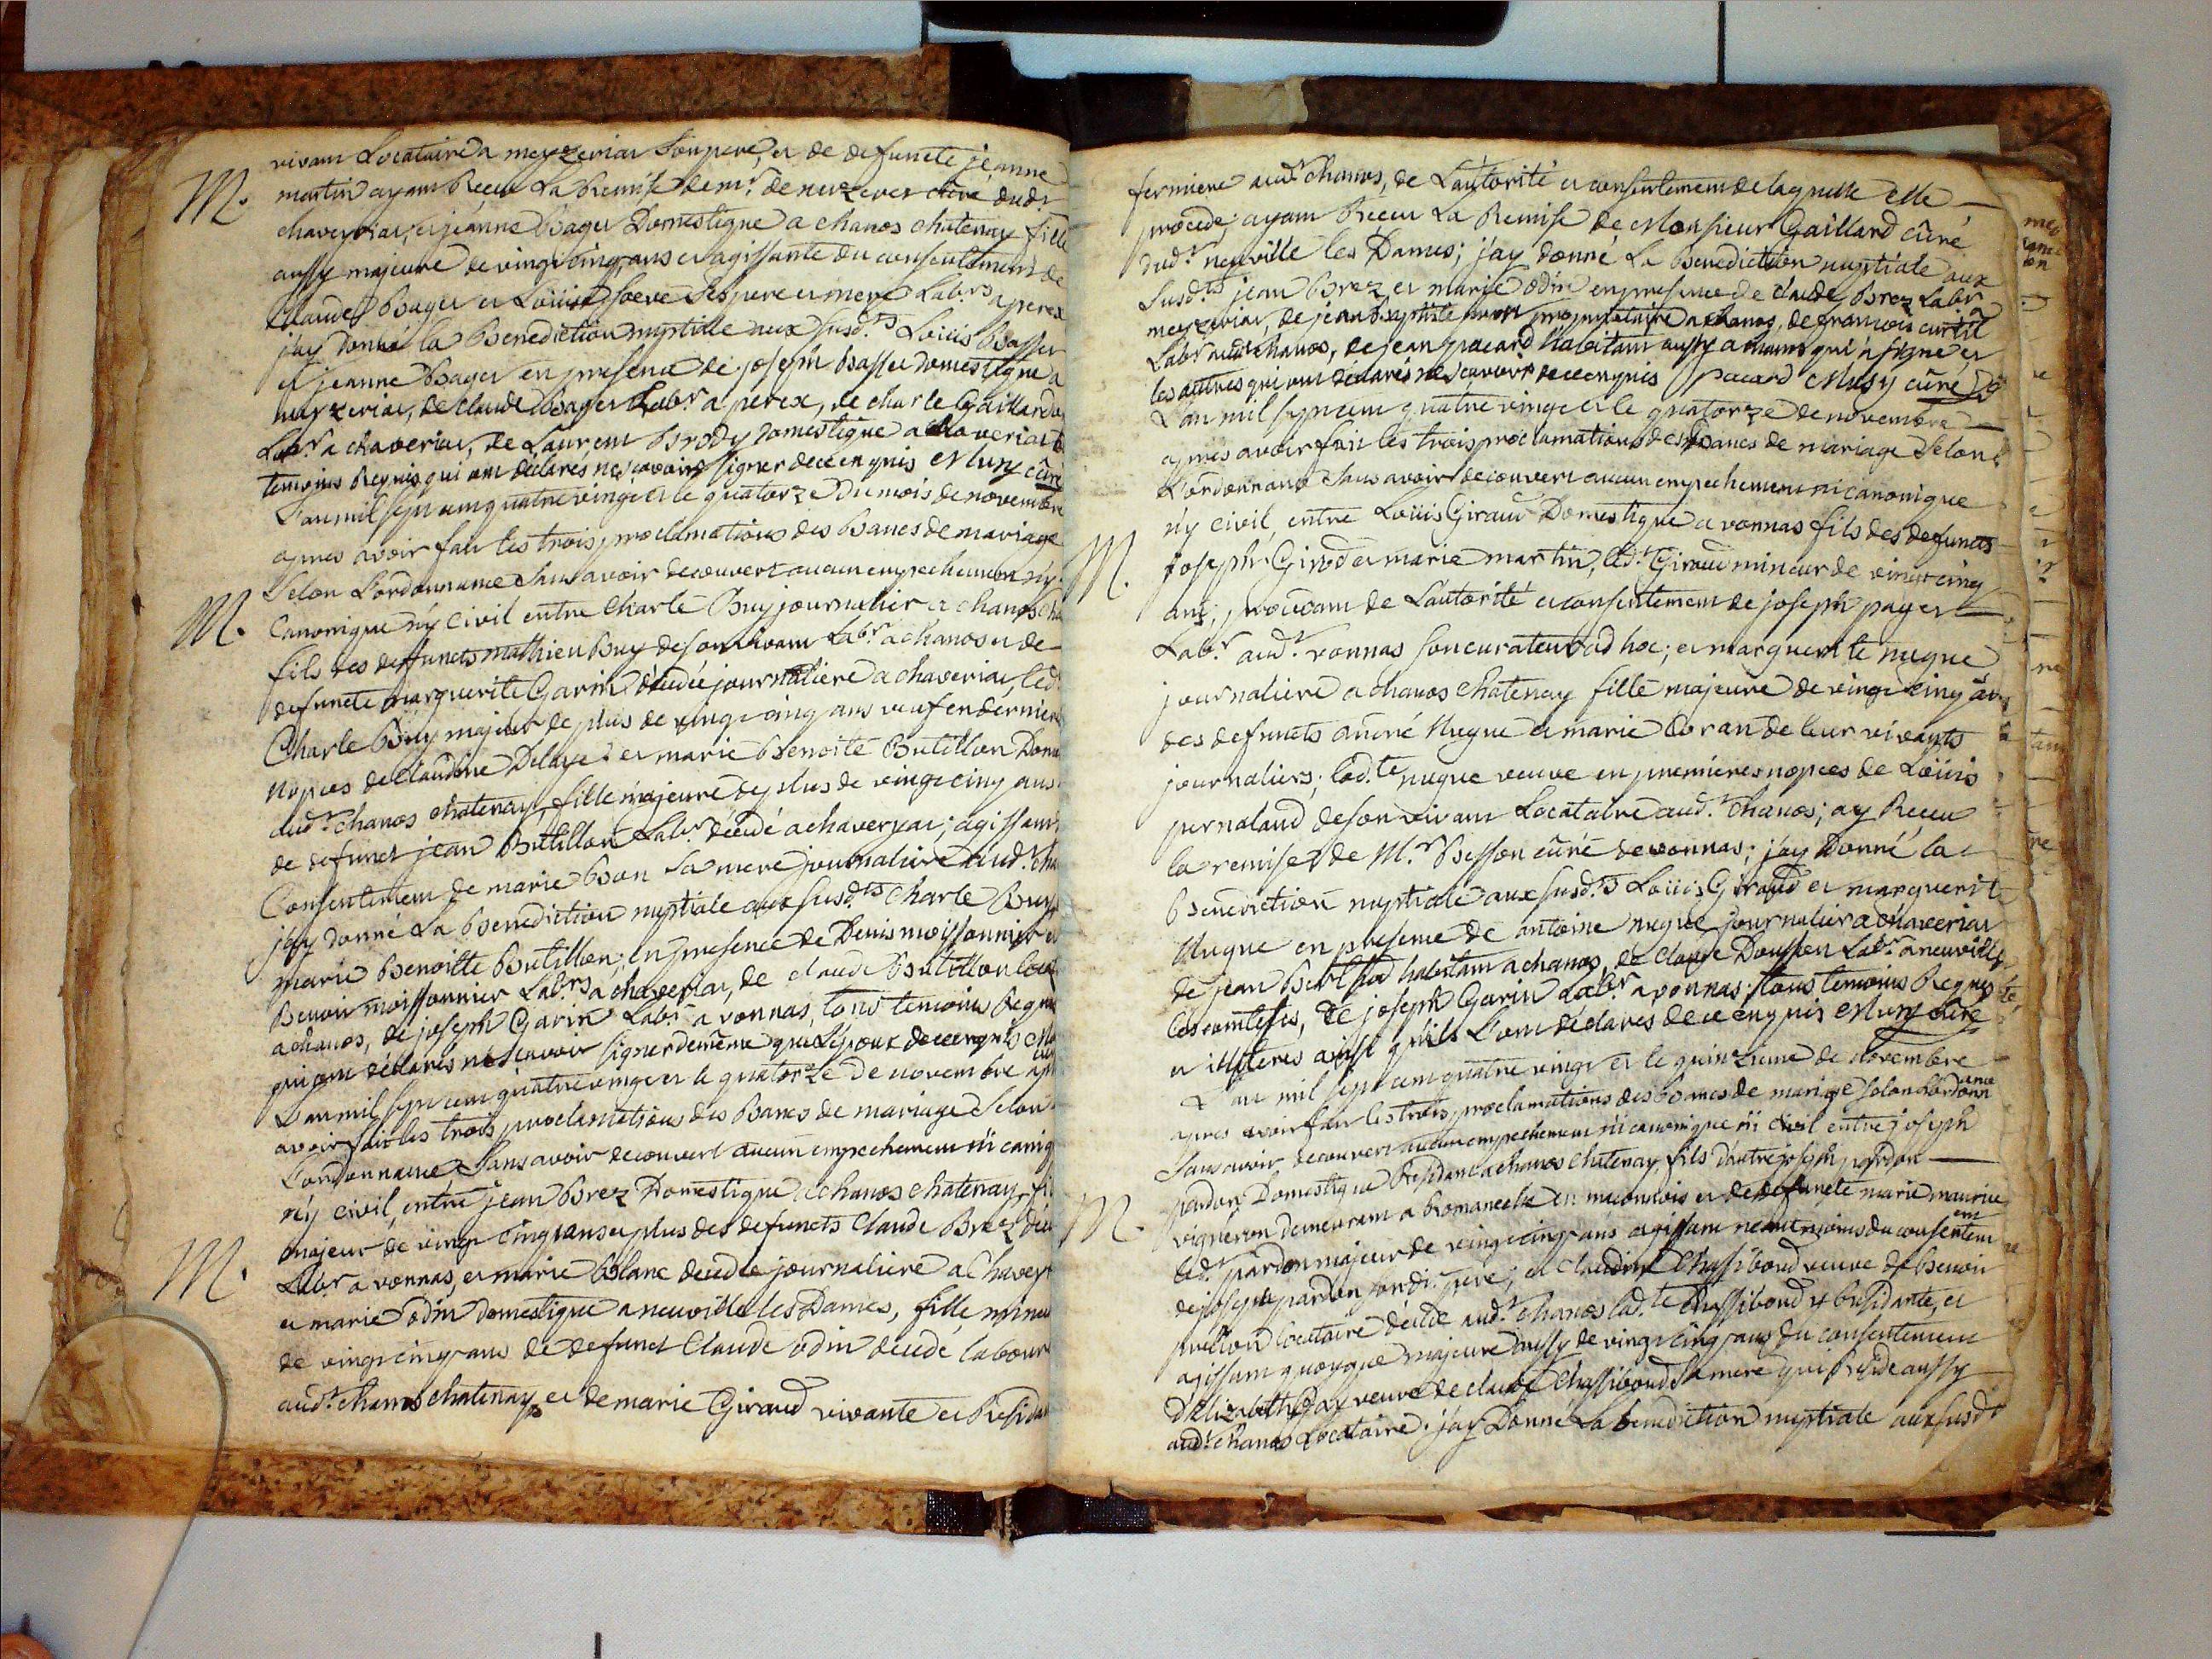 vivant Locataire a meyzeriat son pere, et de defuncte jeanne
M. martin ayant Receu La Remise de mr. de curé dudt
chaveyriat, et jeanne Bager Domestique a chanos chatenay fille
aussy majeure de vingt cinq ans et agissante du consentement de
Claude Bager et Loüise ses pere et mere Labrs a perex
j'ay donné la Benediction nuptiale aux susdts Loüis Basset
et jeanne Bager en presence de joseph Basset domestique a
meyzeriat, de claude Bager Labr a perex, de charle Gaillard
Labr a chaveriat, de Laurent Brody domestique a chaveriat
temoins Requis qui ont declarés ne scavoir signer de ce enquis Musy curé
L'an mil sept cent quatre vingt et le quatorze du mois de novembre
apres avoir fait les trois proclamations des Bancs de mariage
selon L'ordonnance sans avoir decouvert aucun empechement ny
M. Canonique n'y civil entre charle Buy journalier a chanos cha
fils des defuncts mathieu Buy de son vivant Labr a chanos et de
defuncte marguerite Garin décedée journaliere a chaveriat, ledt
Charle Buy majeur de plus de vingt cinq ans veuf en derniere
Nopces de claudine Delaye; et marie Benoite Butillon Dome
audt chanos chatenay, fille majeure de plus de vingt cinq ans
de defunct jean Butillon Labr décédé a chaveryat; agissant
Consentement de marie Bon sa mere journaliere audt cha
j'ay donné La Benediction nuptiale aux susdts charle Buy
marie Benoitte Butillon; en presence de Denis moissonnier et
Benoit moissonnier Labrs a chaveriat, de claude Butillon
a chanos, de joseph Garin Labr a vonnas, tous temoins Requis
qui ont déclarés ne scavoir signer de même que L'Epoux de ce enquis
L'an mil sept cent quatre vingt et le quatorze de novembre apr
avoir fait les trois proclamations des Bancs de mariage selon
L'ordonnance sans avoir decouvert aucun empechement ni canniq
n'y civil, entre jean Brez Domestique a chanos chatenay, fi
majeur de vingt cinq ans et plus des defuncts Claude Brez déce
M. Labr a vonnas, et marie Blanc decedée journaliere a chavery
et marie odin domestique a neuville les Dames, fille mineu
de vingt cinq ans de defunct Claude odin decedé labour
audt chanos chatenay, et de marie Giraud vivante et Residan
fermiere audt chanos, de L'autorité et consentement de laquelle elle
procede; ayant Receu La Remise de Monsieur Gaillard cûré
dudt neuville les Dames; j'ay donné La Benediction nuptiale aux
susdts jean Brez et marie odin en presence de claude Brez Labr
meyzeriat, de jean Baptiste proprietaire a chanos, de francois curtil
Labr audt chanos, de jean pacard habitant aussy a chanos qui a signé, et
les autres qui ont déclarés ne scavoir de ce enquis pacard Musy cûré
L'an mil sept cent quatre vingt et le quatorze de novembre
apres avoir fait les trois proclamations des Bancs de mariage selon
L'ordonnance sans avoir decouvert aucun empechement ni canonique
n'y civil, entre Loüis Giraud Domestique a vonnas fils des defuncts
M. joseph Girod et marie martin, ledt Giraud mineur de vingt cinq
ans; procedant de L'autorité et consentement de joseph pager
Labr audt vonnas son curateur ad hoc; et marguerite nugue
journaliere a chanos chatenay fille majeure de vingt cinq ans
des defuncts andré Nugue et marie Coran de leur vivants
journaliers; ladte nugue veuve en premieres nopces de Loüis
pernaland de son vivant Locataire audt chanos; ay Receu
la remise de Mr Besson cûré de vonnas; j'ay Donné la
Benediction nuptiale aux susdts Loüis Giraud et marguerite
Nugue en presence de antoine nugue journalier a chaveriat
de jean habitant a chanos, de claude Labr a neuville
les comtesses, de joseph Garin Labr a vonnas; tous temoins Requis
et illiteres ainsi qu'ils L'ont déclarés de ce enquis Musy cûré
L'an mil sept cent quatre vingt et le quinzieme de novembre
apres avoir fait les trois proclamations des bancs de mariage selon L'ordonn ance
sans avoir decouvert aucun empechement ni canonique ni civil entre joseph
pardon Domestique Residant a chanos chatenay, fils d'autre joseph pardon
M. vigneron demeurant a Romaneche en maconnois et de defuncte marie maurice
ledt pardon majeur de vingt cinq ans agissant neantmoins du consentem ent
de joseph pardon sondt pere; et claudine Chassiboud veuve de benoit
locataire décédé audt chanos ladte Chassiboud y Residante, et
agissant quoyque majeure aussy de vingt cinq ans du consentement
D'elizabeth veuve de claude Chassiboud sa mere qui Reside aussy
audt chanos Locataire; j'ay Donné La benediction nuptiale aux susdt